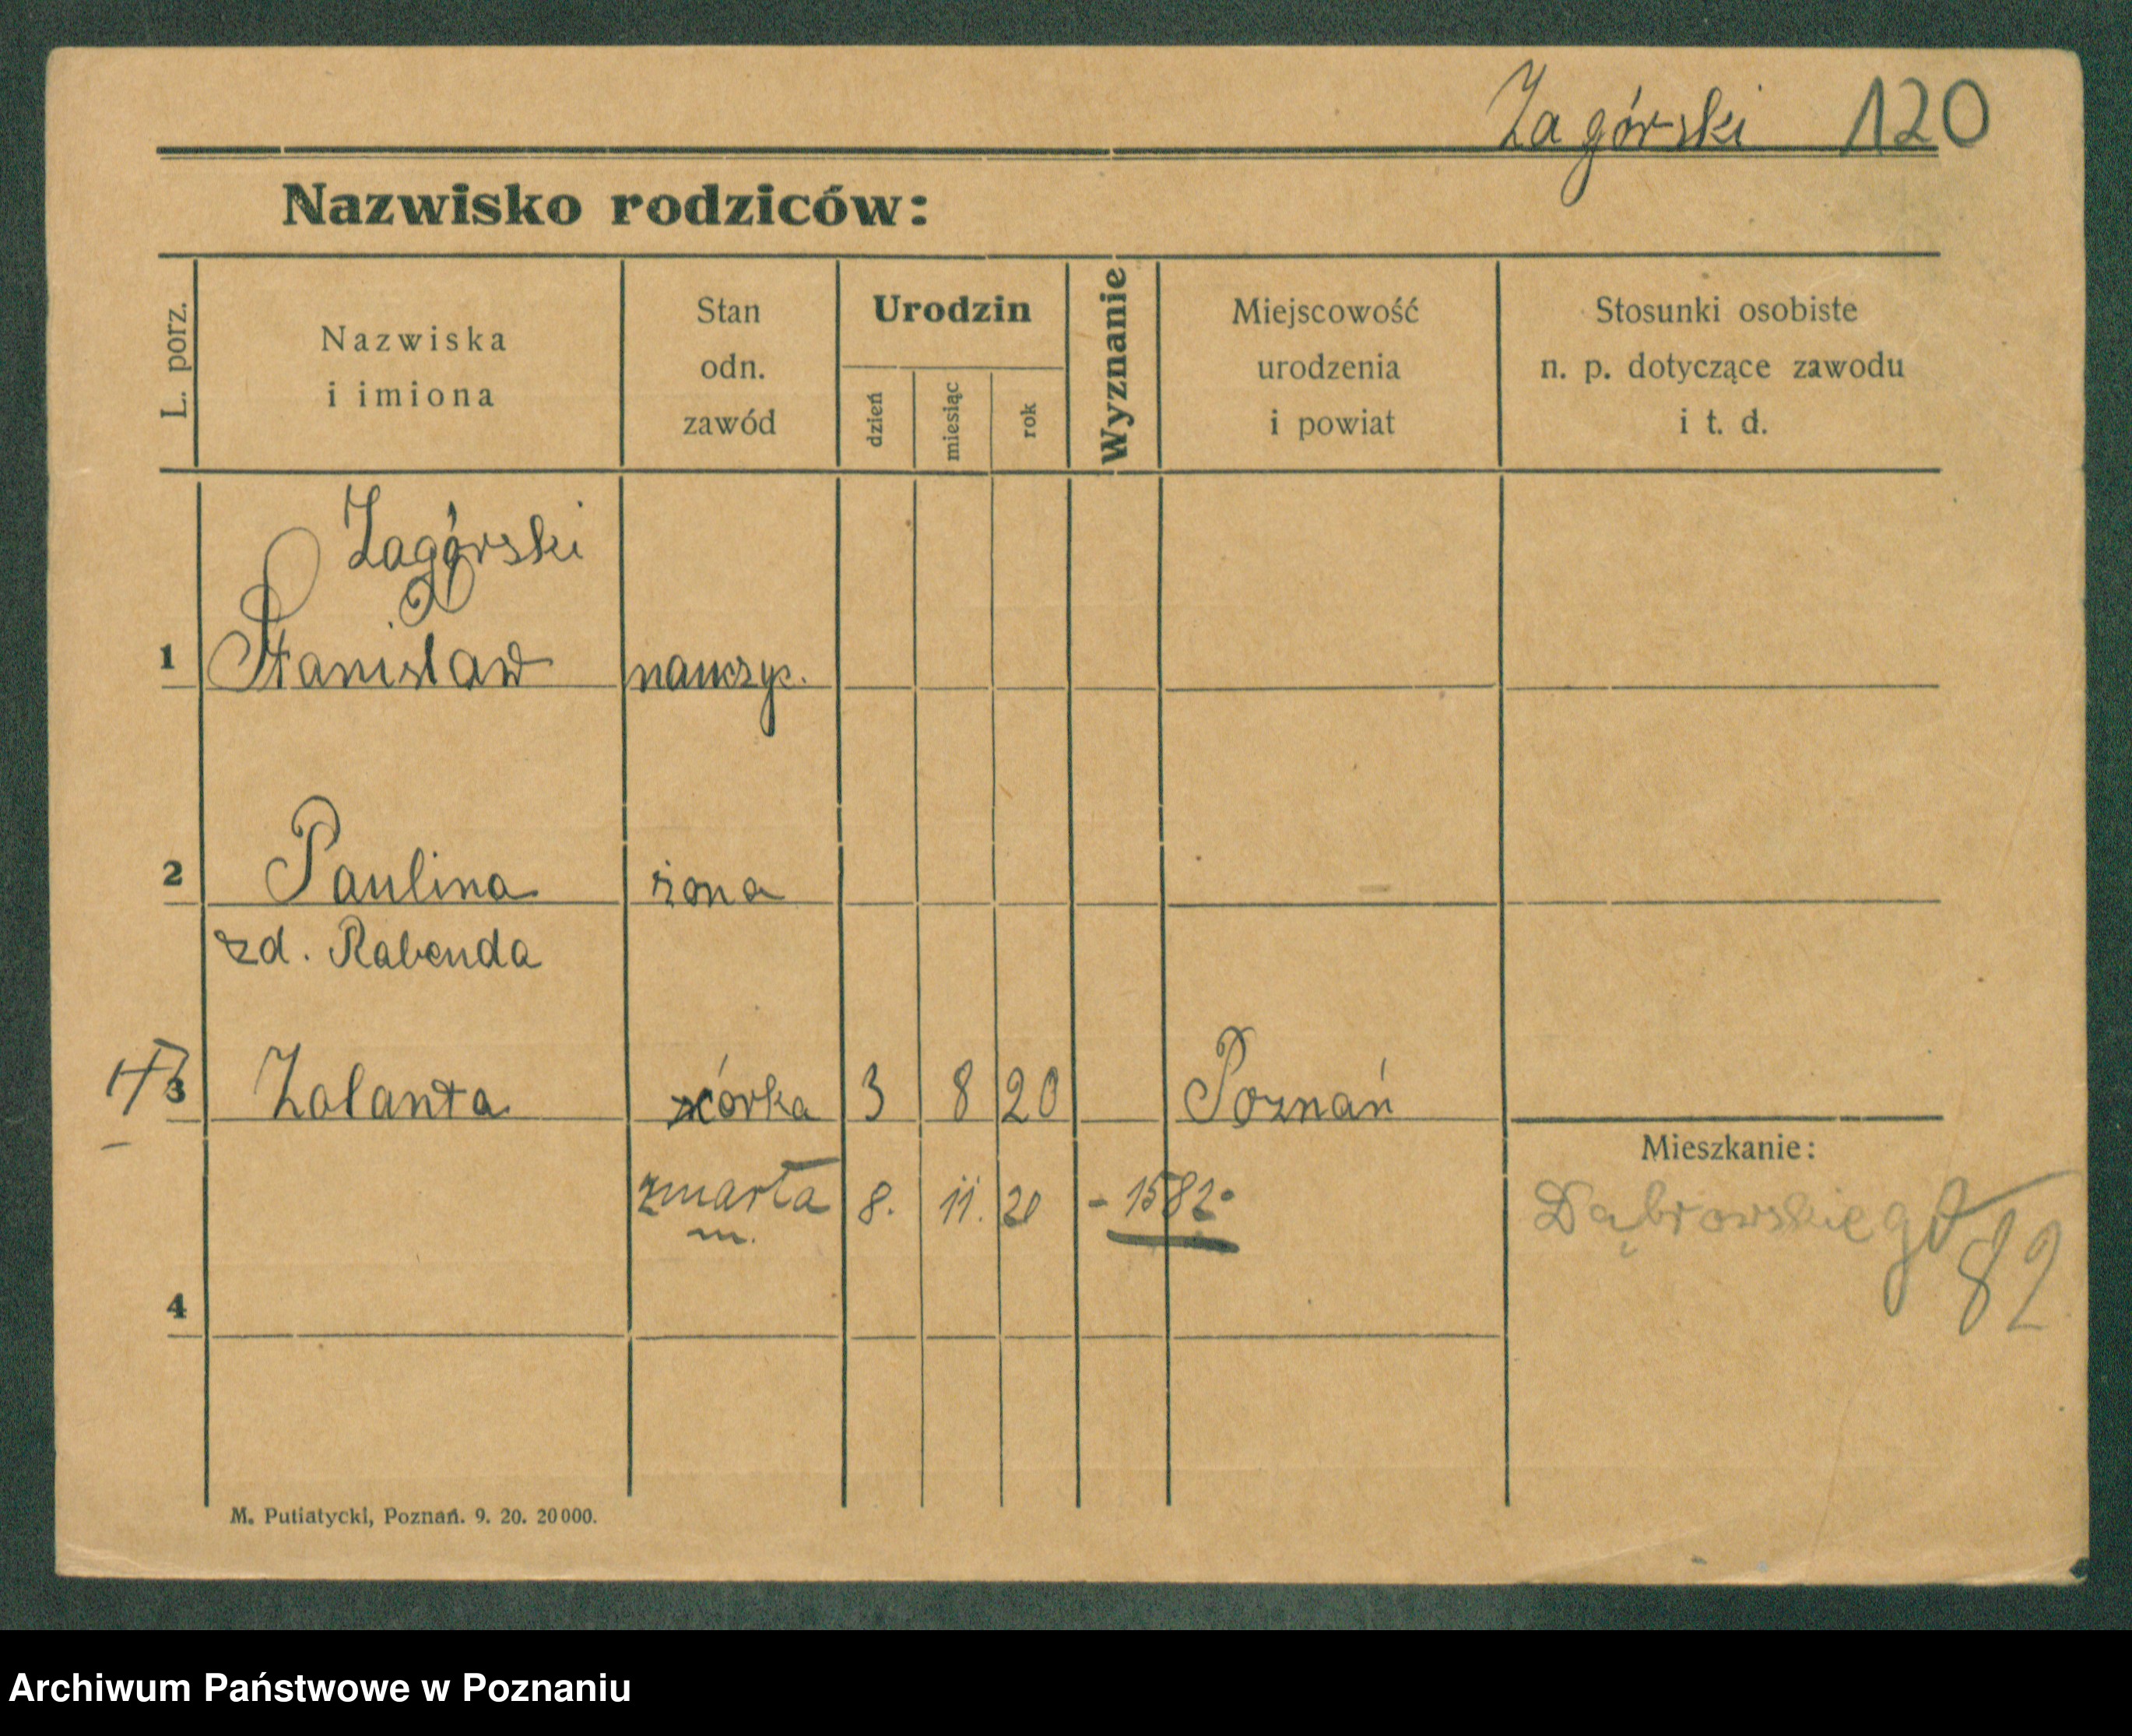 Zagórski 120
Nazwisko rodziców:
L. porz.
Nazwiska
i imiona
Stan
odn.
zawód
Urodzin
dzień
miesiąc
rok
Wyznanie
Miejscowość
urodzenia
i powiat
Stosunki osobiste
n. p. dotyczące zawodu
i t. d.
Zagórski
1 Stanisław nauczyc.
2 Paulina żona
zd. Rabenda
3 Zolanta córka 3 8 20 Poznań
Mieszkanie:
zmarła 8. 11. 20 - 1582.
Dąbrowskiego
82
4
M. Putiatycki, Poznań. 9. 20. 20000.
Archiwum Państwowe w Poznaniu